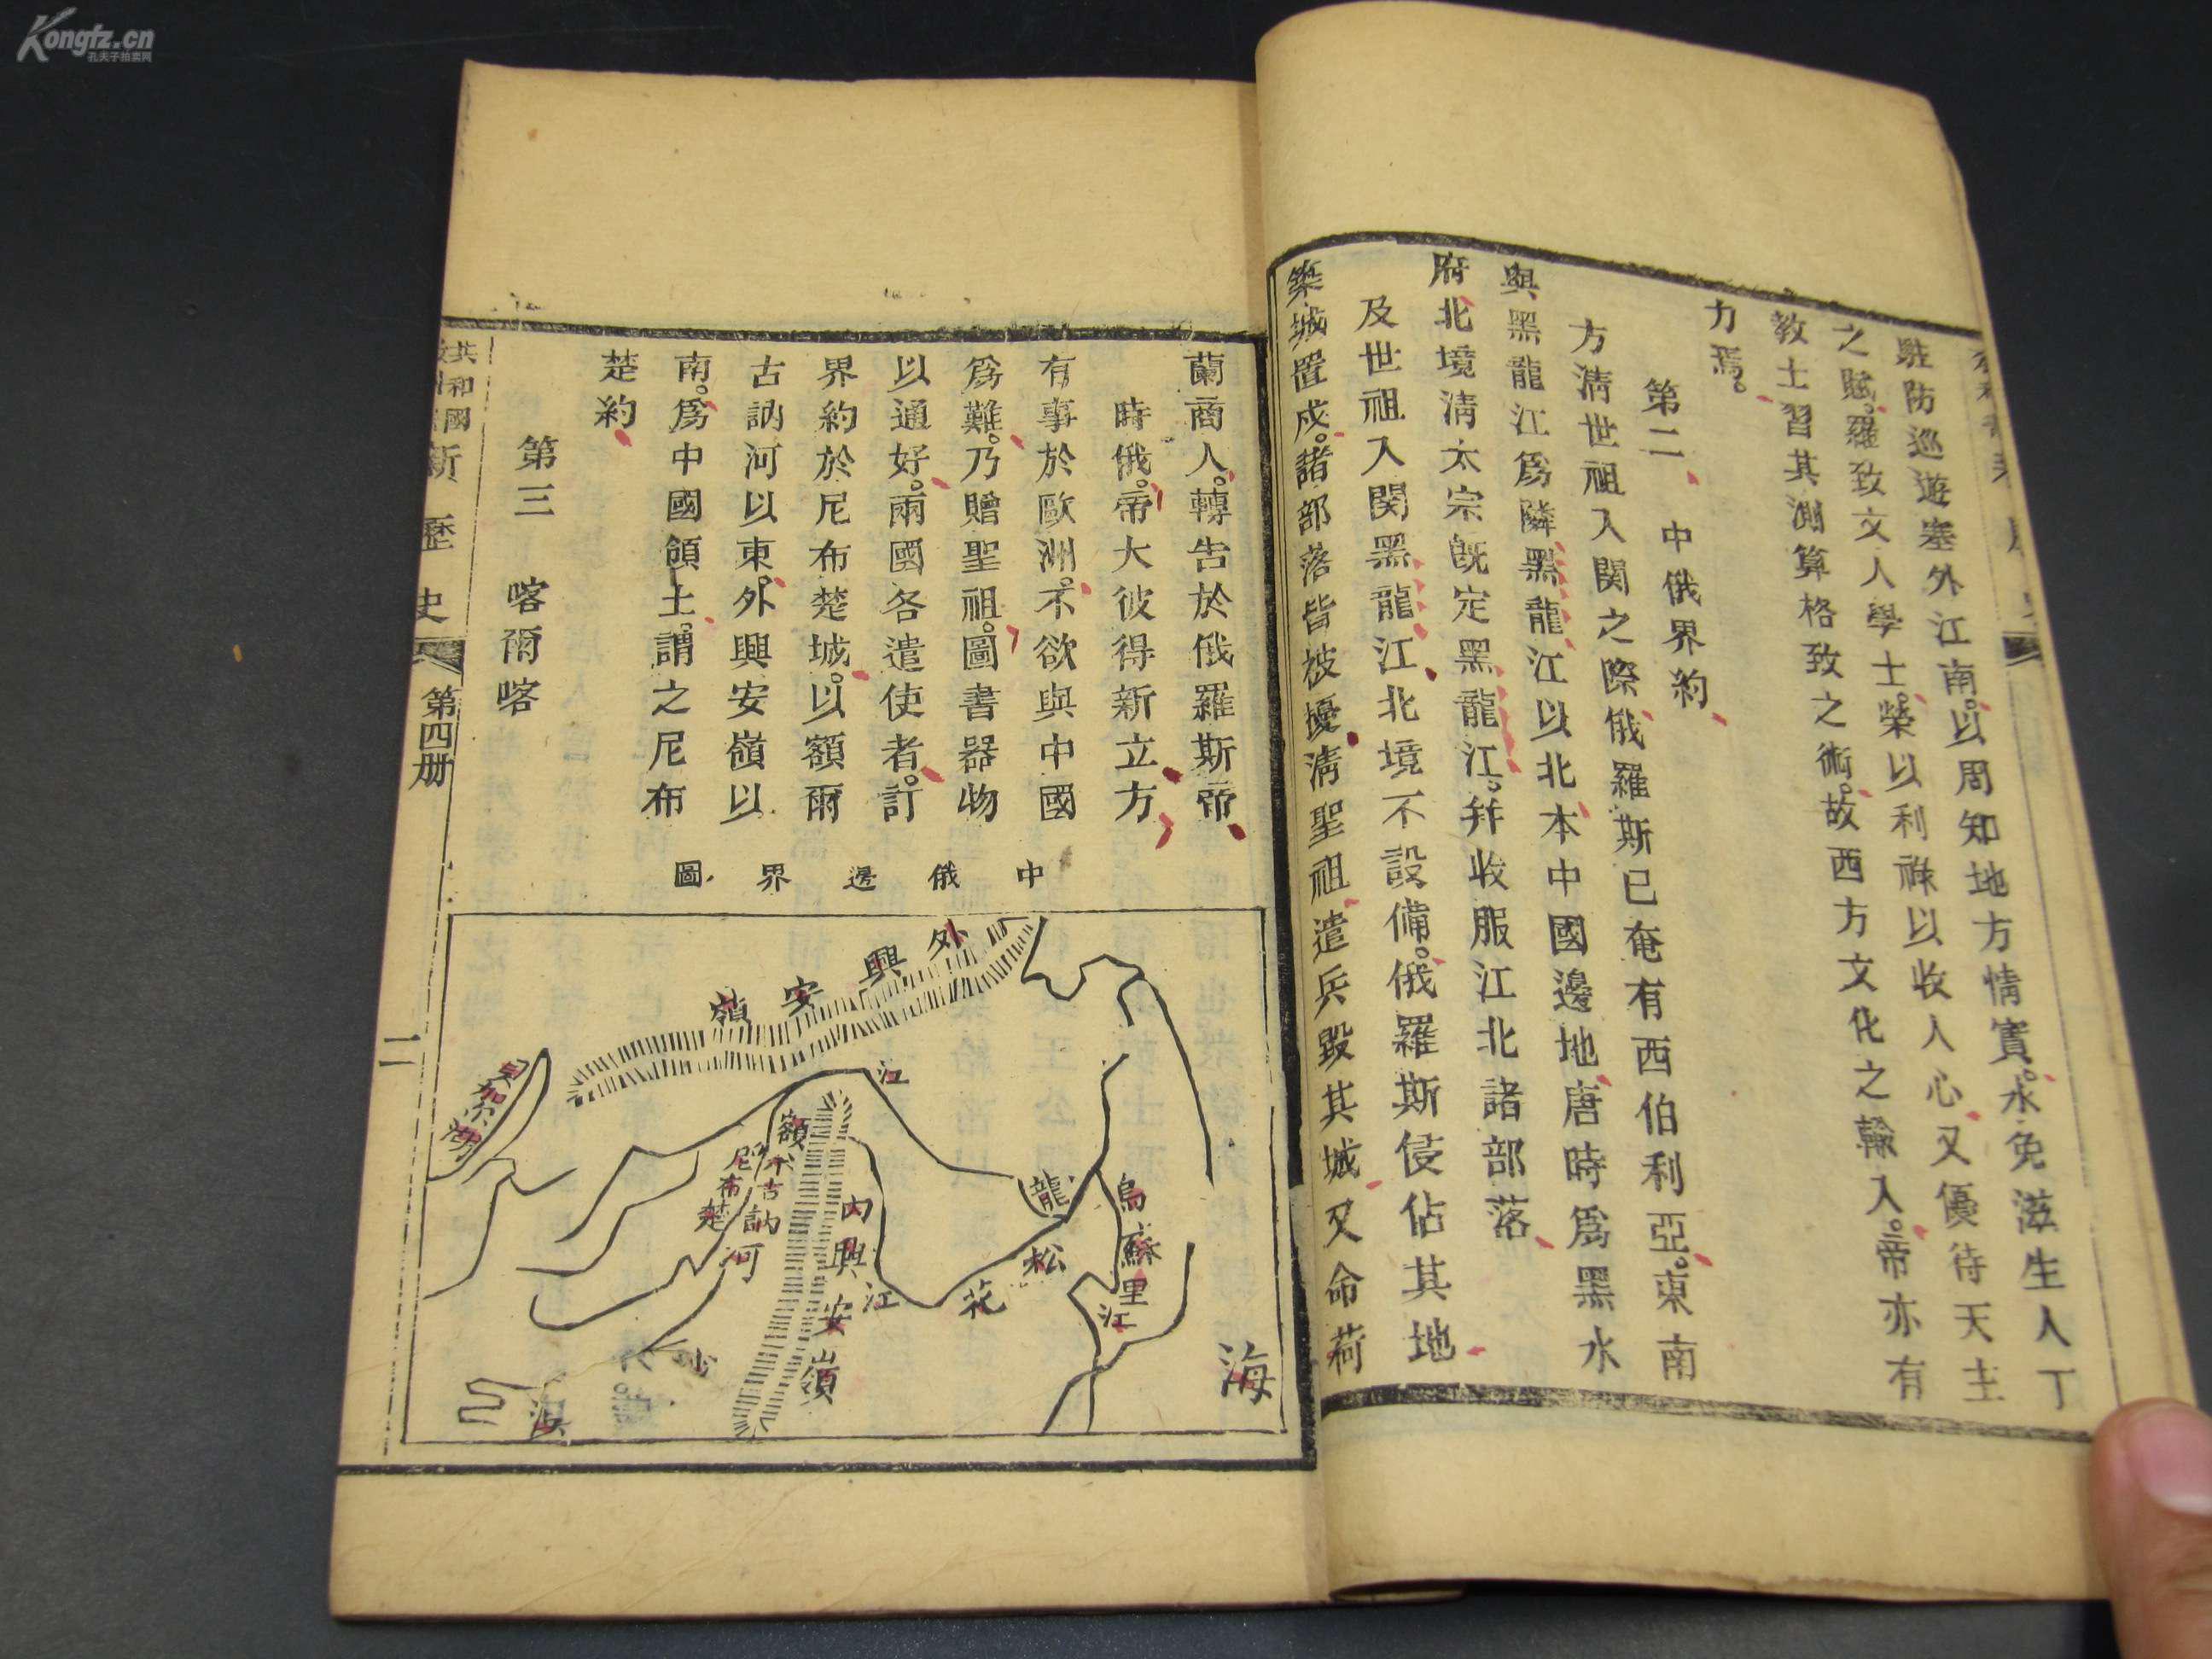 駐防巡遊塞外江南。以周知地方情實。永免滋生人丁
之賦。羅致文人學士。榮以利祿以收人心又優待天主
教士習其測算格致之術。故西方文化之輸入。帝亦有
力焉。
第二 中俄界約
方清世祖入関之際俄羅斯已奄有西伯利亞。東南
與黑龍江爲隣黑龍江以北本中國邊地唐時爲黑水
府北境清太宗既定黑龍江。幷收服江北諸部落
及世祖入関黑龍江北境不設備。俄羅斯侵佔其地
築城置戍。諸部落皆被擾清聖祖遣兵毀其城又命荷
蘭商人。轉告於俄羅斯帝
時俄。帝大彼得新立方
有事於歐洲。不欲與中國
爲難。乃贈聖祖。圖書器物
以通好。兩國各遣使者。訂
界約於尼布楚城。以額爾
古訥河以東。外興安嶺以
南。爲中國領土。謂之尼布
楚約
第三 喀爾喀
中俄邊界圖
外興安嶺
江
貝加尔湖
額尔古訥河
尼布楚
內興安嶺
龍
江
松花
烏蘇里江
海
沙漠
共和國
新歷史
第四册
二
Kongfz.cn
孔夫子拍卖网